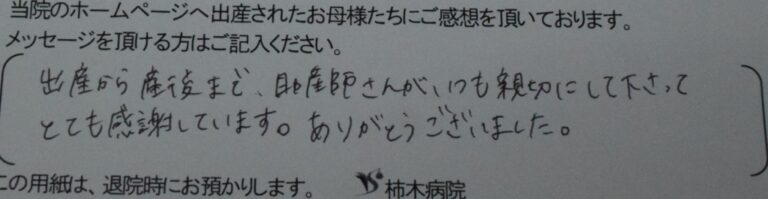 当院のホームページへ出産されたお母様たちにご感想を頂いております。
メッセージを頂ける方はご記入ください。
出産から産後まで、助産師さんがいつも親切にして下さって
とても感謝しています。ありがとうございました。
この用紙は、退院時にお預かりします。 柿木病院